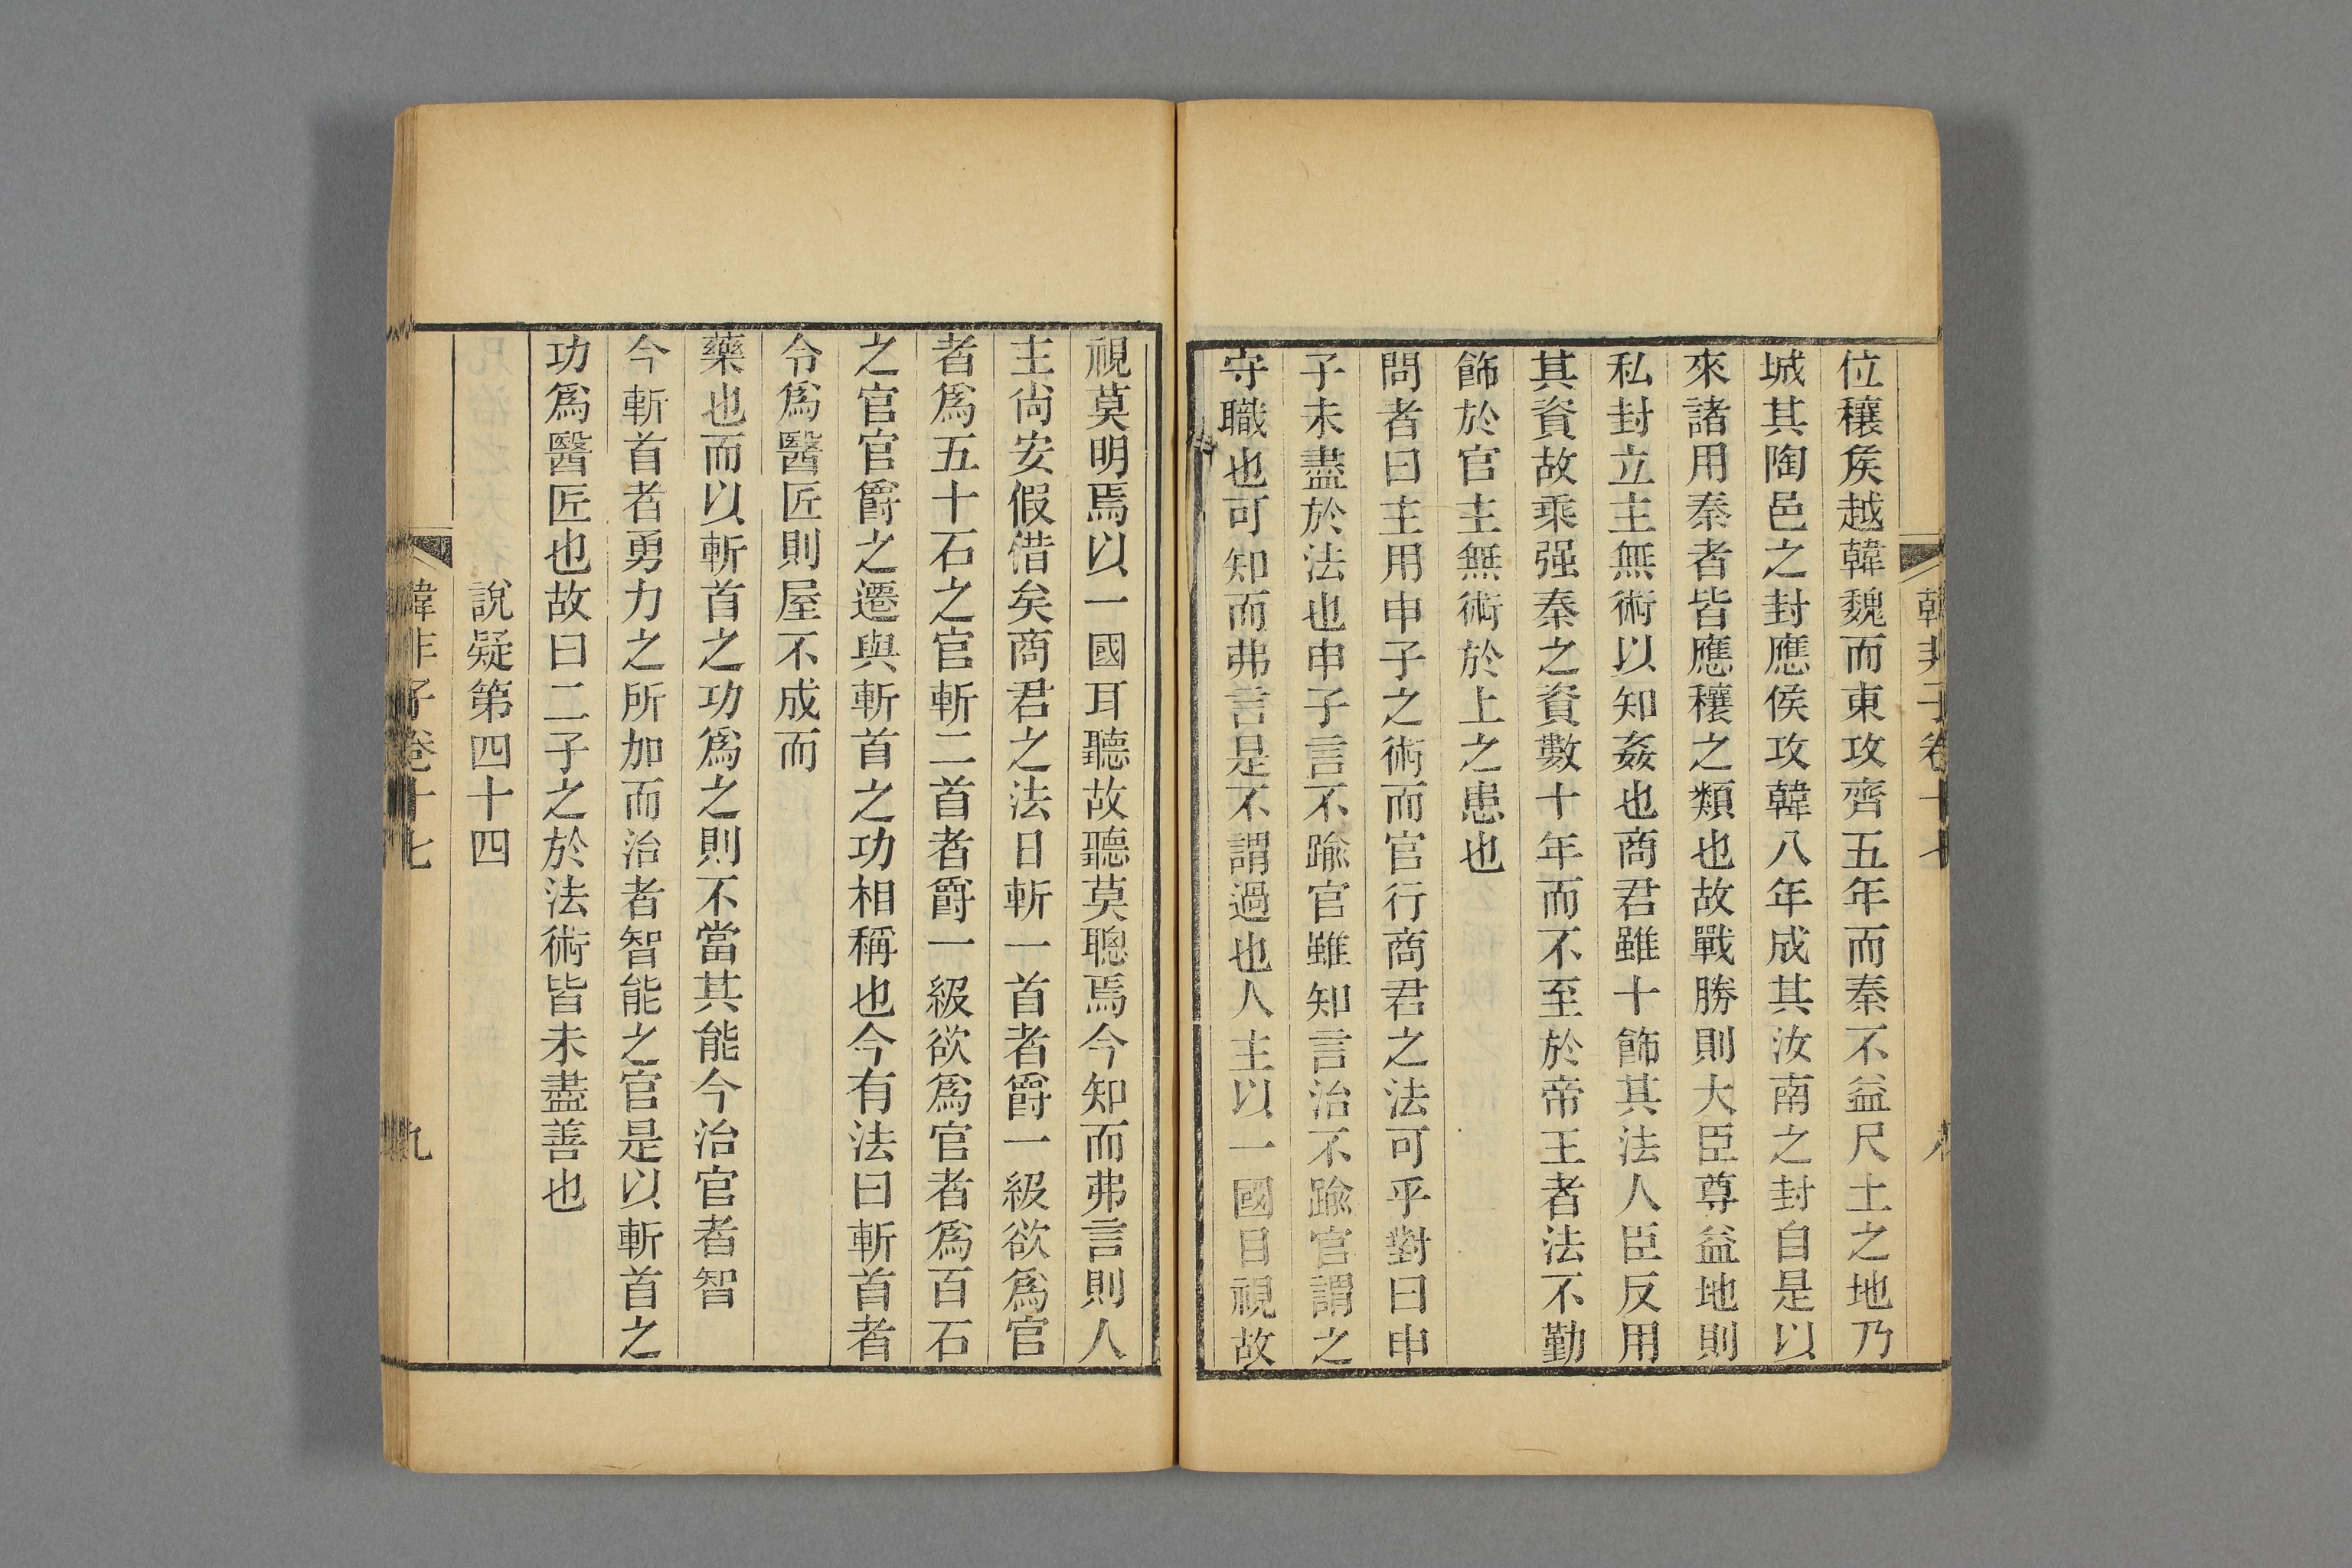 韓非子卷十七
位穰矦越韓魏而東攻齊五年而秦不益尺土之地乃
城其陶邑之封應侯攻韓八年成其汝南之封自是以
來諸用秦者皆應穰之類也故戰勝則大臣尊益地則
私封立主無術以知姦也商君雖十飾其法人臣反用
其資故乘强秦之資數十年而不至於帝王者法不勤
飾於官主無術於上之患也
問者曰主用申子之術而官行商君之法可乎對曰申
子未盡於法也申子言不踰官雖知言治不踰官謂之
守職也可知而弗言是不謂過也人主以一國目視故
視莫明焉以一國耳聽故聽莫聰焉今知而弗言則人
主尙安假借矣商君之法曰斬一首者爵一級欲爲官
者爲五十石之官斬二首者爵一級欲爲官者爲百石
之官官爵之遷與斬首之功相稱也今有法曰斬首者
令爲醫匠則屋不成而
藥也而以斬首之功爲之則不當其能今治官者智
今斬首者勇力之所加而治者智能之官是以斬首之
功爲醫匠也故曰二子之於法術皆未盡善也
說疑第四十四
韓非子卷十七
九